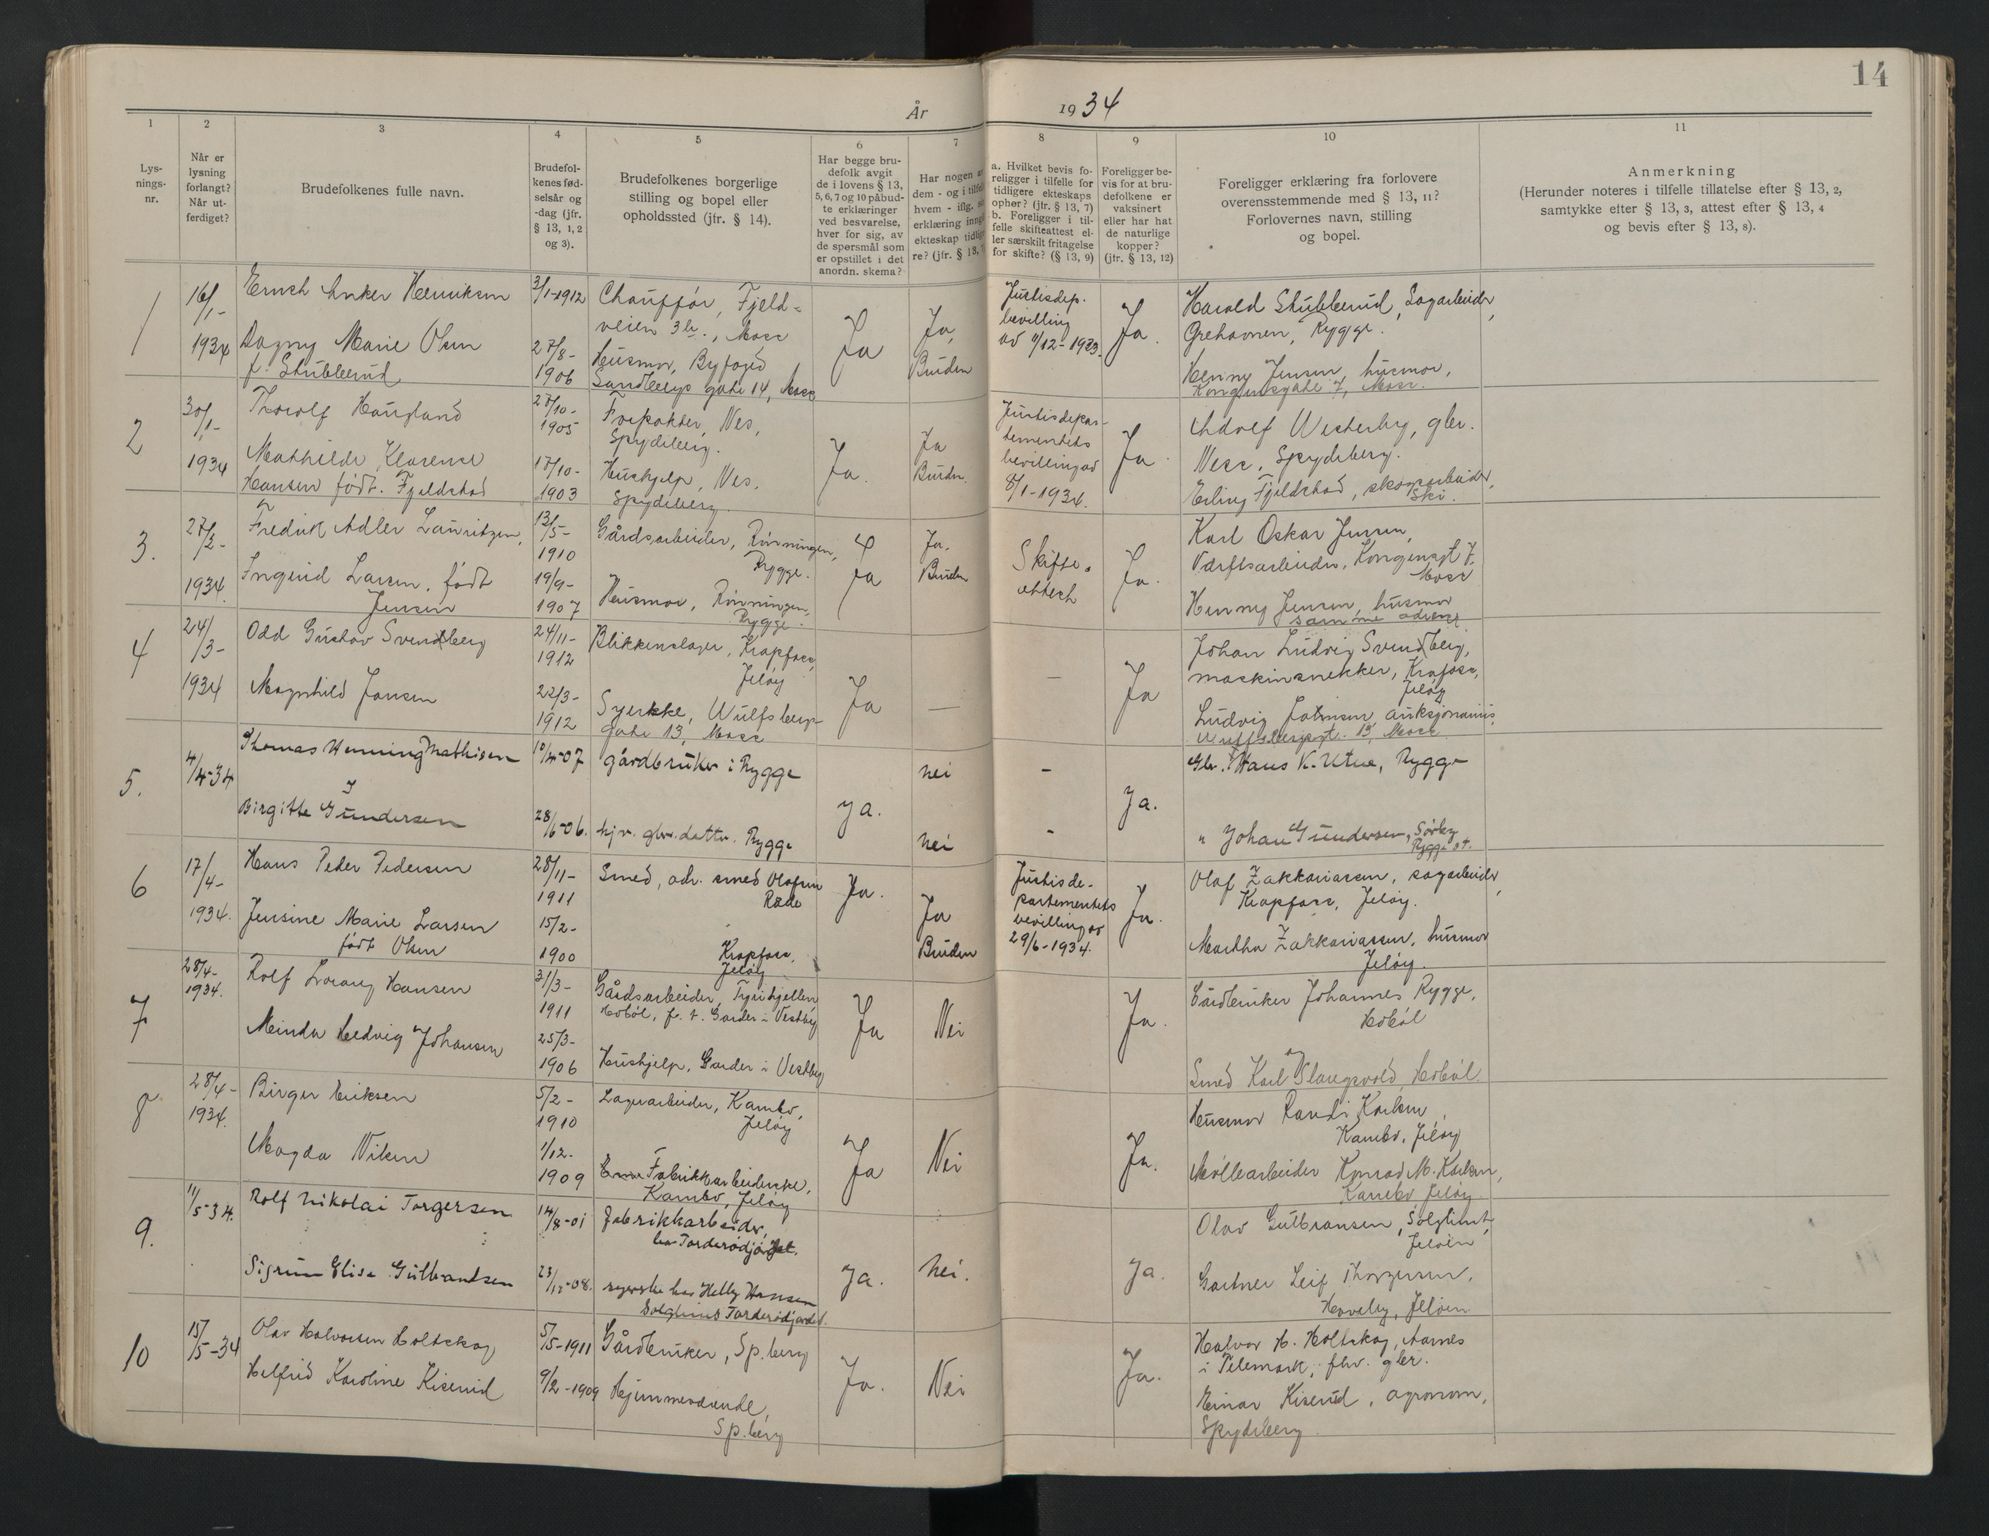 14
År 1934
1 2 3 4 5 6 7 8 9 10 11
Lys-
nings-
nr.
Når er
lysning
forlangt?
Når ut-
ferdiget?
Brudefolkenes fulle navn.
Brudefol-
kenes fød-
selsår og
-dag (jfr.
§ 13, 1, 2
og 3).
Brudefolkenes borgerlige
stilling og bopel eller
opholdssted (jfr. § 14).
Har begge bru-
defolk avgit
de i lovens § 13,
5, 6, 7 og 10 påbud-
te erklæringer
ved besvarelse,
hver for sig, av
de spørsmål som
er opstillet i det
anordn. skema?
Har nogen
dem - og i tilfel
hvem - iflg.
erklæring inngå
ekteskap tidlig
re? (jfr. § 13, 7
a. Hvilket bevis fo-
religger i tilfelle for
tidligere ekteskaps
opher? (jfr. § 13, 7)
b. Foreligger i til-
felle skifteattest el-
ler særskilt fritagelse
for skifte? (§ 13, 9)
Foreligger be-
vis for at bru-
defolkene er
vaksinert
eller har hat
de naturlige
kopper?
(jfr. § 13, 12)
Foreligger erklæring fra forlovere
overensstemmende med § 13, 11?
Forlovernes navn, stilling
og bopel.
Anmerkning
(Herunder noteres i tilfelle tillatelse efter § 13, 2,
samtykke efter § 13, 3, attest efter § 13, 4
og bevis efter § 13, 8).
1
16/1-
1934
Ernst Anker Henriksen
Dagny Marie Olsen
f. Stubberud
3/1-1912
27/8-
1906
Chauffør, Fjeld-
veien 3b., Moss
Husmor, Byfoged
Sandbergs gate 14, Moss
Ja
Ja,
Bruden
Justisdep.
bevilling
av 11/12-1933.
Ja.
Harald Stubberud, Sagarbeider,
Grehavnen, Rygge.
Henny Jensen, husmor,
Kongensgate 7, Moss.
2
30/1-
1934
Thorolf Haugland
Mathilde Klarense
Hansen født. Fjeldstad
27/10-
1905
17/10-
1903
Forpakter, Nes,
Spydeberg.
Hushjelp, Nes,
Spydeberg.
Ja.
Ja
Bruden.
Justisdepar-
tementets
bevilling av
8/1-1934.
Ja.
Adolf Westerby, gbr.
Ness, Spydeberg.
Erling Fjeldstad, skogarbeider,
Ski.
3.
27/2-
1934.
Fredrik Adler Lauritzen,
Ingrid Larsen, født
Jensen
13/5-
1910
19/9-
1907
Gårdsarbeider, Rönningen,
Rygge.
Husmor, Rönningen,
Rygge.
Ja
Ja.
Bruden
Skifte-
attest
Ja.
Karl Oskar Jensen,
Værftsarbeider, Kongensgt 7.
Moss
Henny Jensen, husmor
samme adresse
4
24/3-
1934
Odd Gustav Svendberg
Magnhild Jansen
24/11-
1912
22/3-
1912
Blikkenslager, Krapfoss,
Jeløy
Syerske, Wulfsbergs-
gate 13, Moss
Ja
—
—
Ja
Johan Ludvig Svendberg,
maskinsnekker, Krapfoss,
Jeløy
Ludvig Johnsen, auksjonarius,
Wulfsbergsgt. 13, Moss.
5.
4/4-34
Thomas Henning Mathisen
Birgitte Gundersen
10/4-07
28/6-06.
gårdbruker i Rygge
hjv. gbr.dattr. Rygge
ja.
nei
nei
-
-
ja.
Gbr. Hans K. Utne, Rygge
" Johan Gundersen, Sørby
Rygge st.
6
17/4-
1934.
Hans Peder Pedersen
Jensine Marie Larsen
født Olsen
28/11-
1911
15/2-
1900
Smed, adr. smed Olafsen
Råde
Krapfoss,
Jeløy
Ja.
Ja
Bruden
Justisde-
partementets
bevilling av
29/6-1934.
Ja.
Olaf Zakkariassen, sagarbeider,
Krapfoss, Jeløy.
Martha Zakkariassen, husmor
Jeløy.
7
28/4-
1934.
Rolf Lorang Hansen
Minda Hedvig Johansen
31/3-
1911
25/3-
1906
Gårdsarbeider, Tyrihjellen,
Hobøl, f. t. Garder i Vestby
Hushjelp, Garder i Vestby
Ja
Nei
Ja.
Gårdbruker Johannes Rygge,
Hobøl
Smed Karl Slangsvold, Hobøl.
8
28/4-
1934.
Birger Eriksen
Magda Nilsen
5/2-
1910
1/12.
1909
Lagerarbeider, Kambo,
Jeløy
Fabrikkarbeiderske,
Kambo, Jeløy
Ja
Nei
Ja.
Husmor Randi Karlsen,
Kambo, Jeløy
Møllearbeider Konrad M. Karlsen,
Kambo, Jeløy.
9.
11/5-34.
Rolf Nikolai Torgersen
Sigrun Elise Gulbrandsen
14/8-01
23/12-08.
Fabrikkarbeider,
Torderødjordet.
syerske hos Helly Hansen
Torderødjordet.
ja.
nei.
ja.
Olav Gulbransen, Solglimt,
Jeløen
Gartner Leif Thorgersen,
Haveby, Jeløen
10
15/5-34
Olav Halvorsen Holtskog
Helfrid Karoline Kiserud
5/5-1911
9/2-1909
Gårdbruker, Sp.berg
Hjemmeværende,
Sp.berg
Ja.
Nei
Ja.
Halvor H. Holtskog, Aarnes
i Telemark, fhv. gbr.
Einar Kiserud, agronom,
Spydeberg.